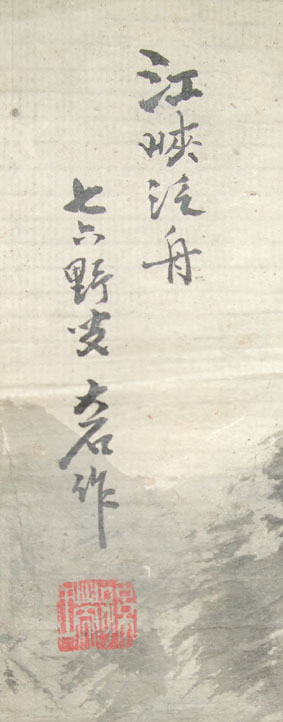 江峡泛舟
七六野叟 大石作